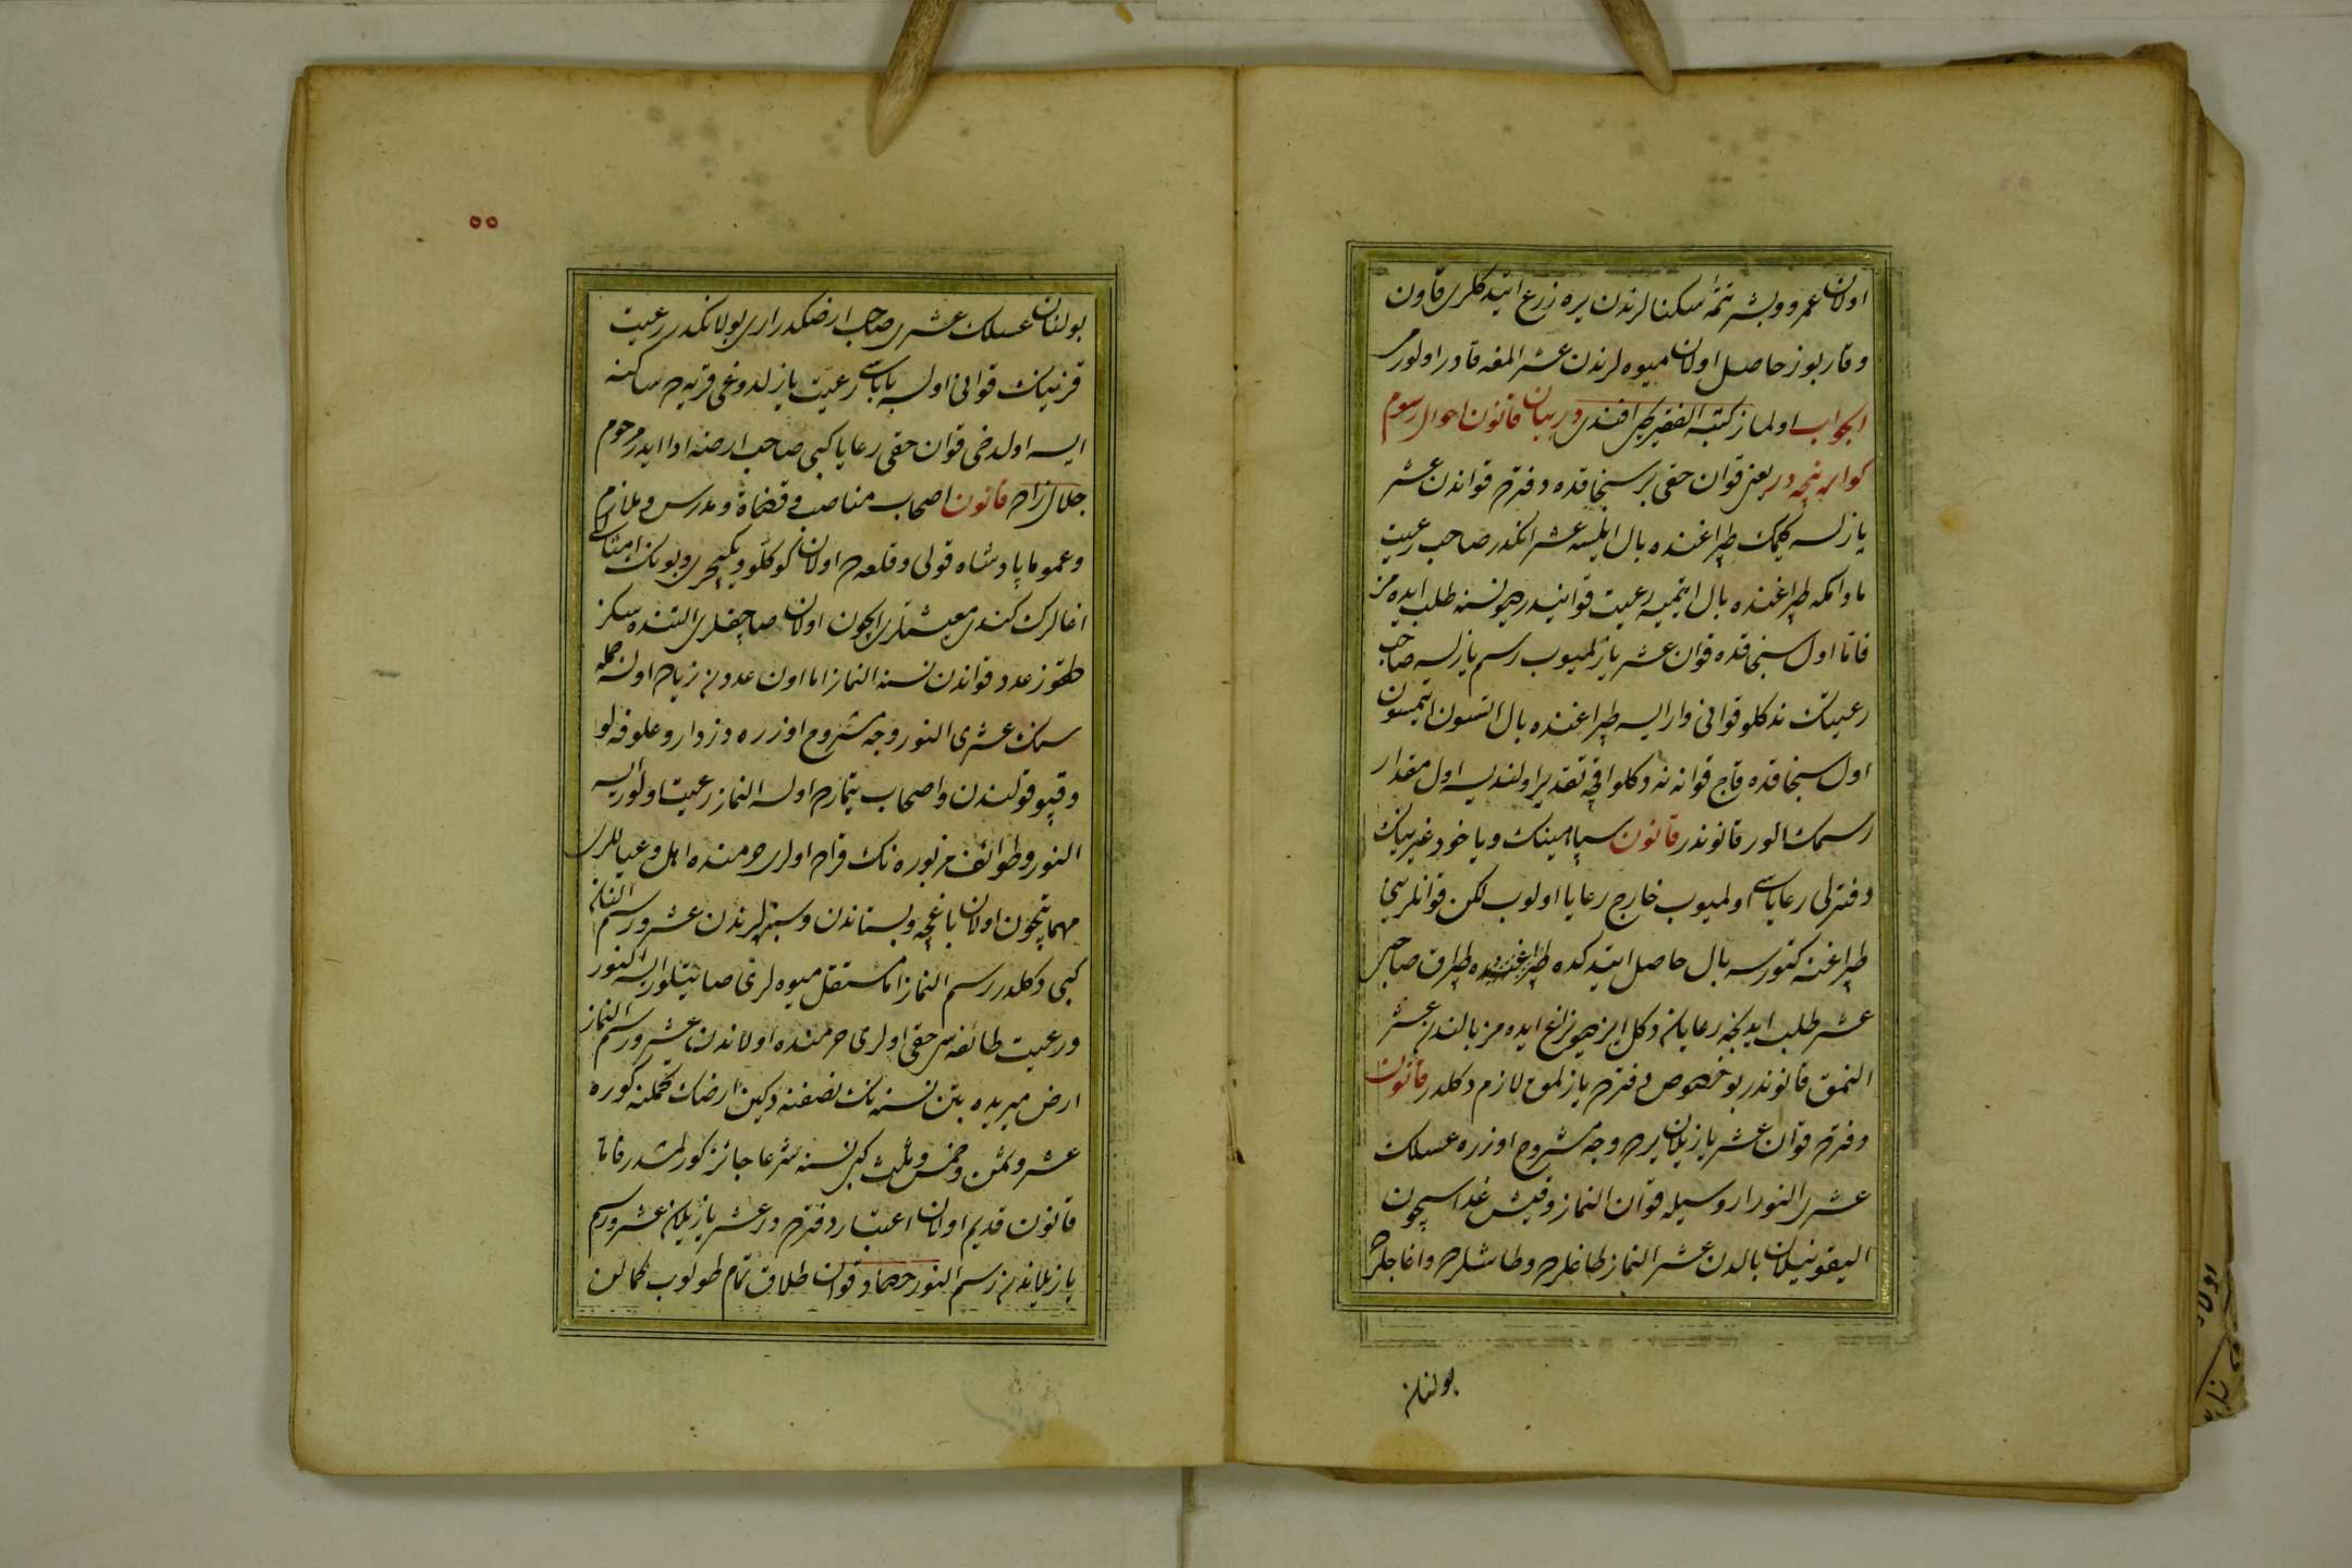 اولان عمرو و بشر تتمهٔ سكنالرندن يره زرع ايتدكلرى قاون
و قاربوز حاصل اولان ميوه لرندن عشر المغه قادر اولورمى
الجواب اولماز كتبه الفقير در بيان قانون احوال رسوم
كواره نيجه در يعنى قوان حقى بر سنجاقده دفترده قواندن عشر
يازلسه كيمك طپراغنده بال ايلسه عشر انكدر صاحب رعيت
مادامكه طپراغنده بال ايتميه رعيت قوانيدر ديو نسنه طلب ايده مز
فاما اول سنجاقده قوان عشر يازلميوب رسم يازلسه صاحب
رعيتك نه دكلو قوانى وار ايسه طپراغنده بال اتسون اتمسون
اول سنجاقده قاچ قوانه نه دكلو اقچه تقدير اولنديسه اول مقدار
رسمك الور قانوندر قانون سپاهينك وياخود غيرينك
دفترلى رعاياسى اولميوب خارج رعايا اولوب لكن قوانلرينى
طپراغنه كتورسه بال حاصل ايتدكده طپراق صاحبى
عشر طلب ايديجك رعايام دكل ايمز ديو نزاع ايده مز بالندن عشر
النمق قانوندر بو خصوص دفترده يازلمق لازم دكلدر قانون
دفترده قوان عشر يازيلان يرده وجه مشروح اوزره عسلك
عشرى النور اروسيله قوان النماز و قيش غداسيچون
اليقونيلان بالدن عشر النماز طاغلرده و طاشلرده و اغاجلرده
بولنان
٥٥
بولنان عسلك عشرى صاحب ارضكدر ارى بولانكدر رعيت
قزينك قوانى اولسه باباسى رعيت يازلدوغى قريه ده ساكنه
ايسه اول دخى قوان حقى رعايا كبى صاحب ارضه ادا ايدر مرحوم
جلال زاده قانون اصحاب مناصب و قضاة و مدرس و ملازم
و عموما پادشاه قولى و قلعه ده اولان كوكللو و يكيچرى و بونك امثالى
اغالرك كندى معيشتلرى ايچون اولان صاچقلرى التنده سكز
طقوز عدد قواندن نسنه النماز اما اون عددن زياده اولنجه جمله
سنك عشرى النور وجه مشروح اوزره دزدار و علوفه لو
و قپو قولندن و اصحاب تيمارده اولسه النماز رعيت اولور ايسه
النور و طوائف مزبوره نك قرا ده اولرى حرمنده اهل و عياللرى
مهماتيچون اولان باغچه و بستاندن و سبزه لرندن عشر و رسم النان
كبى دكلدر رسم النماز اما مستقل ميوه لرى صاتيلور ايسه النور
و رعيت طائفه سى حقى اولرى حرمنده اولاندن عشر و رسم النماز
ارض ميريده بتن نسنه نك نصفنه دكين ارضك تحملنه كوره
عشر و ثمن و خمس و ثلث كبى نسنه شرعا جائز كورلمشدر فاما
قانون قديم اولان اعتبار دفترده در عشر يازيلان عشر و رسم
يازيلاندن رسم النور قوان طلاق تمام طولوب كمالن